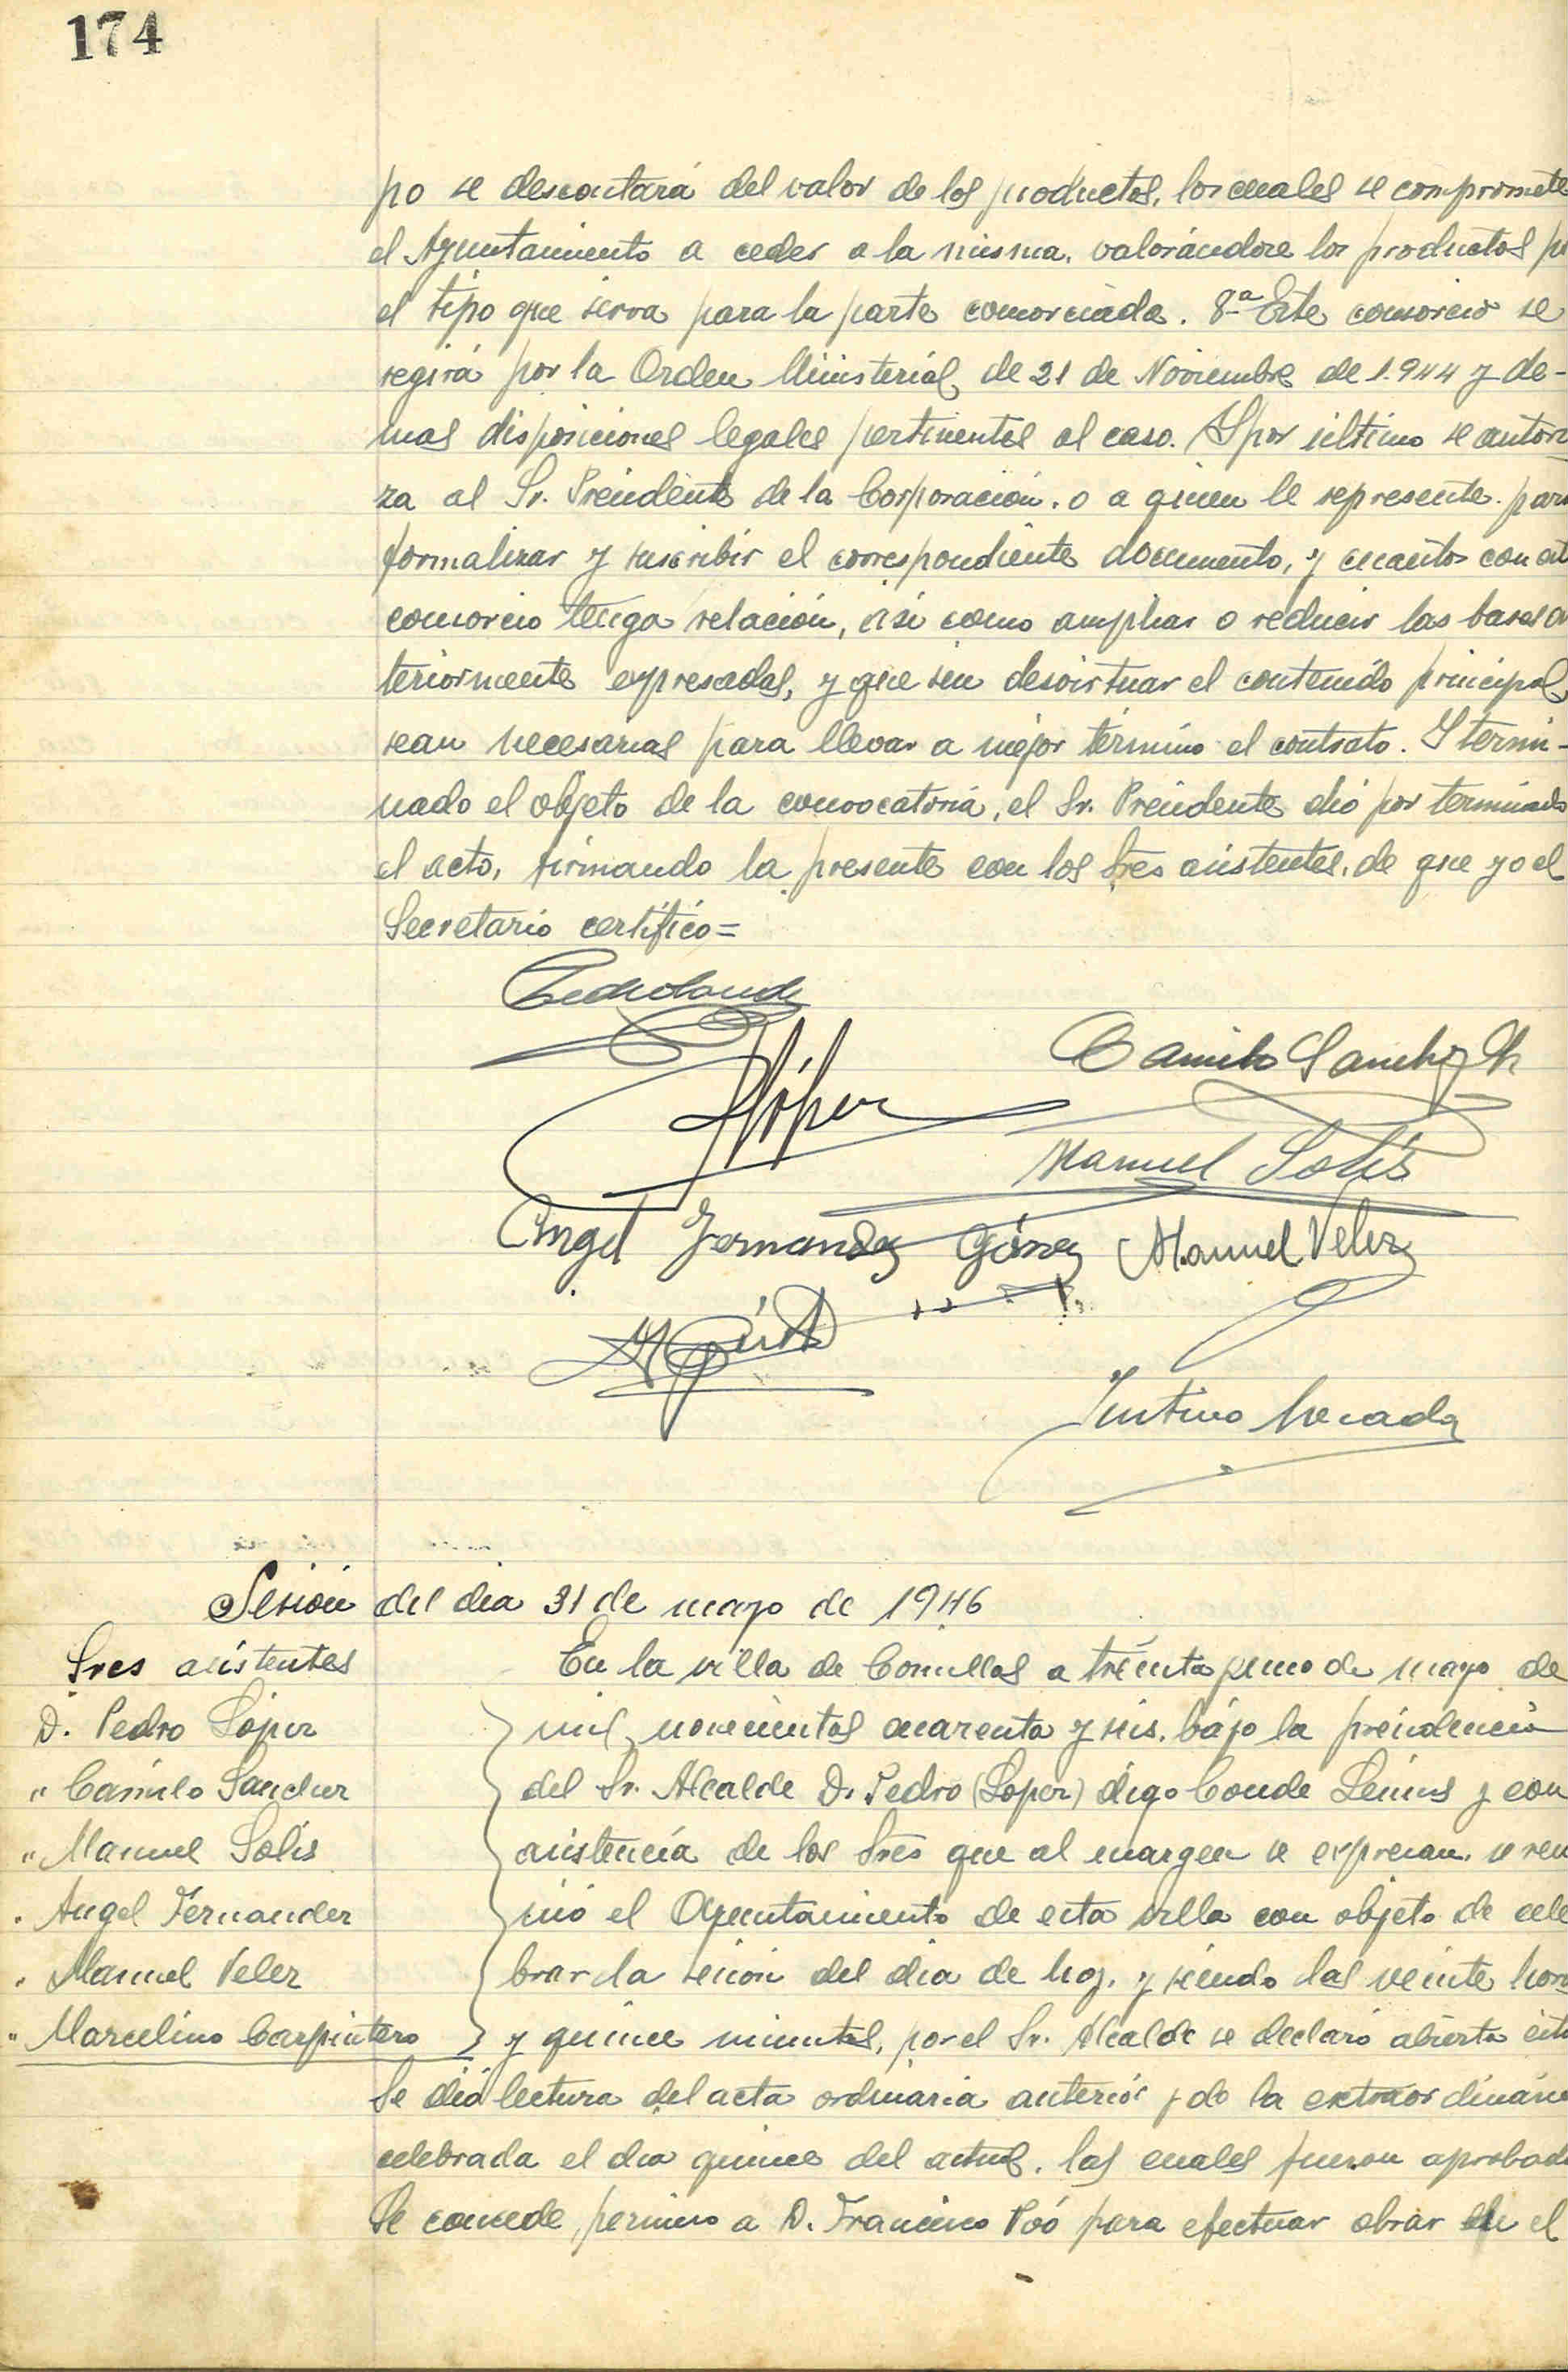 174
po se descontará del valor de los productos, los cuales se compromete
el Ayuntamiento a ceder a la misma, valorándose los productos
el tipo que sirva para la parte consorciada. 8ª Este consorcio se
regirá por la Orden Ministerial de 21 de Noviembre de 1.944 y de-
mas disposiciones legales pertinentes al caso. Y por último se autori
za al Sr. Presidente de la Corporación, o a quien le represente, para
formalizar y suscribir el correspondiente documento, y cuanto con
consorcio tenga relación, así como ampliar o reducir las bases an
teriormente expresadas, y que sin desvirtuar el contenido principal,
sean necesarias para llevar a mejor término el contrato. Y termi-
nado el objeto de la convocatoria, el Sr. Presidente dió por terminado
el acto, firmando la presente con los Sres asistentes, de que yo el
Secretario certifico=
Pedro Conde
López
Camilo Sanchez
Manuel Solís
Angel Fernandez Gómez Manuel Velez
Sesión del dia 31 de mayo de 1946
Sres asistentes
D. Pedro López
" Camilo Sanchez
" Manuel Solís
" Angel Fernandez
" Manuel Velez
" Marcelino Carpintero
En la villa de Comillas a treinta y uno de mayo de
mil novecientos cuarenta y seis, bajo la presidencia
del Sr. Alcalde D. Pedro (Lopez) digo Conde Lenins y con
asistencia de los Sres que al margen se expresan, se reu
nió el Ayuntamiento de esta villa con objeto de cele
brar la sesion del dia de hoy, y siendo las veinte hora
y quince minutos, por el Sr. Alcalde se declaró abierta esta
Se dió lectura del acta ordinaria anterior y de la extraordinaria
celebrada el dia quince del actual, las cuales fueron aprobada
Se concede permiso a D. Francisco Poó para efectuar obras en el